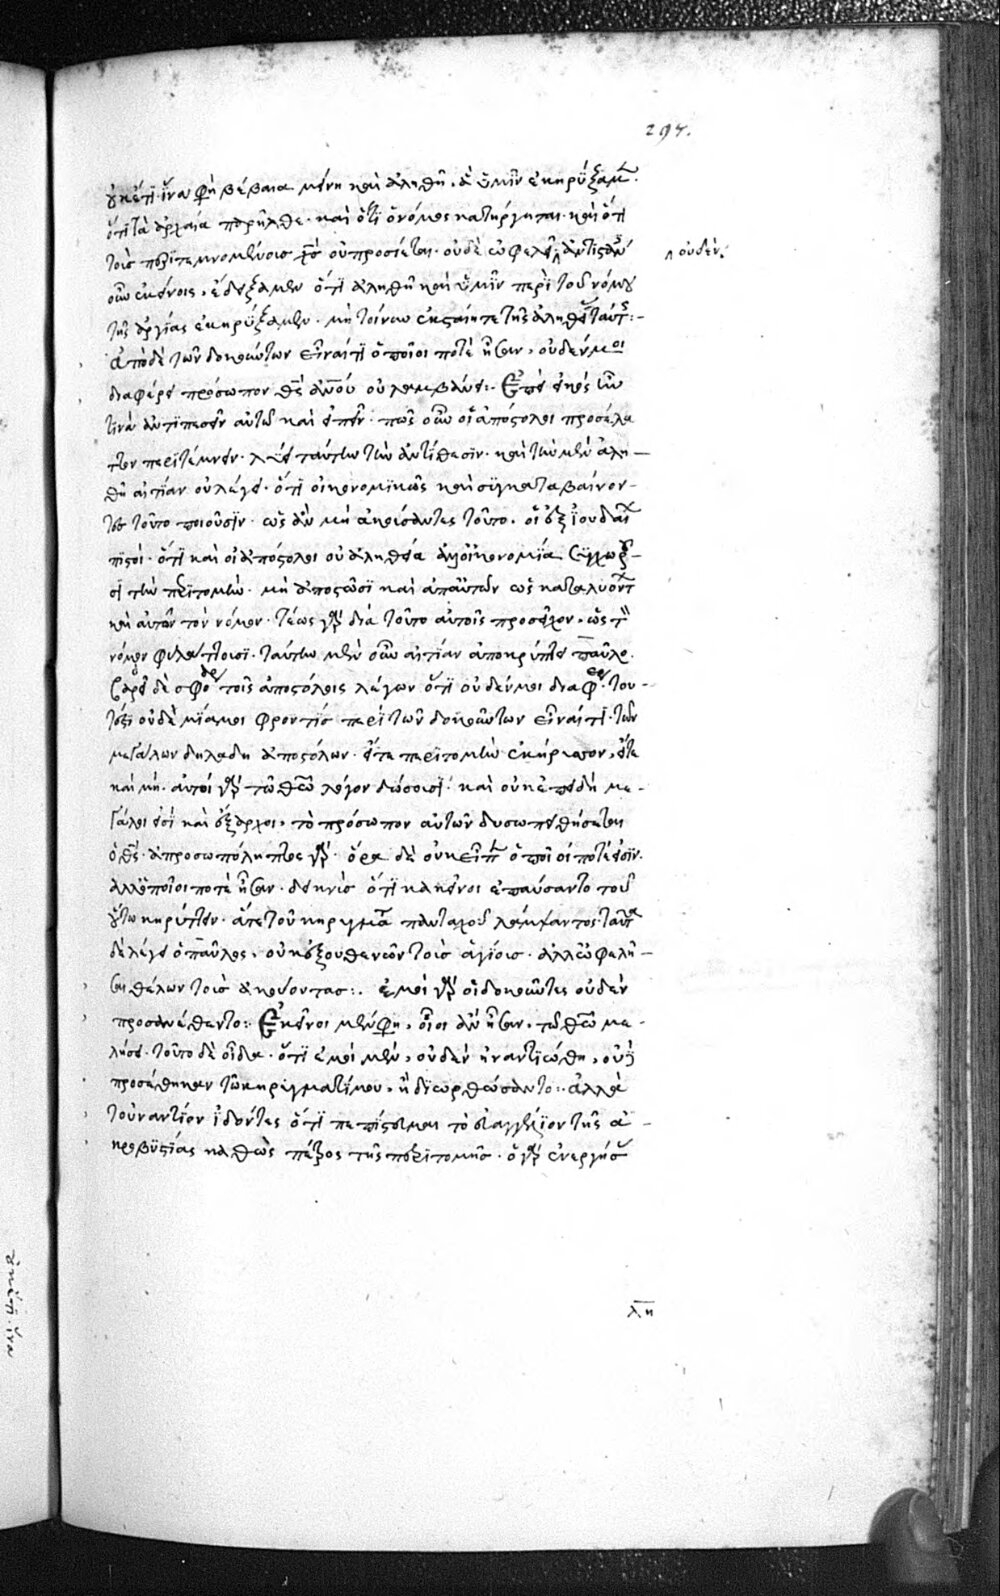 297.
οὐκέτι. ἵνα φη βέβαια μένη καὶ ἀληθῆ, ἃ ὑμῖν ἐκηρύξαμ
ὅτι τὰ ἀρχαῖα παρῆλθε. καὶ ὅτι ὁ νόμος κατήργηται. καὶ ὅτι
τοὺς περιτεμνομένους χς οὐ προσίεται. οὐδὲ ὠφελεῖ
οὐδέν.
οὖν ἐκείνοις, ἐδείξαμεν ὅτι ἀληθῆ καὶ ὑμῖν περὶ τοῦ νόμου
τῆς ἀργίας ἐκηρύξαμεν. μὴ τοίνυν ἐκσταίητε τῆς ἀληθείας ταύτ:-
ἀπὸ δὲ τῶν δοκούντων εἶναί τι ὁποῖοι ποτὲ ἦσαν, οὐδέν μοι
διαφέρει πρόσωπον θς ἀνου οὐ λαμβάνει:- Ἐπεὶ εἰκὸς ἦν
τινὰ ἀντιπεσεῖν αὐτῶ καὶ εἰπεῖν. πῶς οὖν οἱ ἀπόστολοι προσέτα
ττον περιτέμνειν. λύει ταύτην τὴν ἀντίθεσιν. καὶ τὴν μὲν ἀλη-
θῆ αἰτίαν οὐ λέγει. ὅτι οἰκονομικῶς καὶ συγκαταβαίνον-
τες τοῦτο ποιοῦσιν. ὡς ἂν μὴ ἀκούσαντες τοῦτο, οἱ ἐξ ἰουδαί
πιστοί. ὅτι καὶ οἱ ἀπόστολοι οὐκ ἀληθεία ἀλλ' οἰκονομία συγχωρ-
σι τὴν περιτομὴν. μὴ ἀποστῶσι καὶ ἀπ' αὐτῶν ὡς καταλυόντ
καὶ αὐτῶν τὸν νόμον. τέως γὰρ διὰ τοῦτο αὐτοῖς προσεῖχον, ὡς τὸν
νόμον φυλάττουσι. ταύτην μὲν οὖν αἰτίαν ἀποκρύπτει παῦλος.
βαρεῖ δὲ σφοδρ τοῖς ἀποστόλοις λέγων ὅτι οὐδέν μοι διαφέρ. του-
τέστι οὐδὲ μία μοι φροντὶς περὶ τῶν δοκούντων εἶναί τι. τῶν
μεγάλων δηλαδὴ ἀποστόλων. εἴτε περιτομὴν ἐκήρυττον, εἴτε
καὶ μή. αὐτοὶ γὰρ τῶ θεῶ λόγον δώσουσι. καὶ οὐκ ἐπειδὴ με-
γάλοι εἰσὶ καὶ ἔξαρχοι, τὸ πρόσωπον αὐτῶν δυσωπηθήσεται
ὁ θς. ἀπροσωπόληπτος γὰρ. ὅρα δὲ οὐκ εἶπ ὁποῖοί ποτέ εἰσιν.
ἀλλ' ὁποῖοι ποτὲ ἦσαν. δεικνὺς ὅτι κἀκεῖνοι ἐπαύσαντο τοῦ
οὕτω κηρύττειν. ἅτε τοῦ κηρύγμα πανταχοῦ λάμψαντος. ταῦτα
δὲ λέγει ὁ παῦλος, οὐκ ἐξουθενῶν τοὺς ἁγίους. ἀλλ' ὠφελῆ-
σαι θέλων τοὺς ἀκούοντας:. ἐμοὶ γὰρ οἱ δοκοῦντες οὐδὲν
προσανέθεντο: Ἐκεῖνοι μέν φη, οἷοι ἂν ἦσαν, τῶ θεῶ με-
λήσει. τοῦτο δὲ οἶδα. ὅτι ἐμοὶ μὲν, οὐδὲν ἠναντιώθη, οὐδὲ
προσέθηκαν τῶ κηρύγματί μου, ἢ διωρθώσαντο:. ἀλλὰ
τοὐναντίον ἰδόντες ὅτι πεπίστευμαι τὸ εὐαγγέλιον τῆς ἀ-
κροβυστίας καθὼς πέτρος τῆς περιτομῆς. ὁ γὰρ ἐνεργήσ
λη